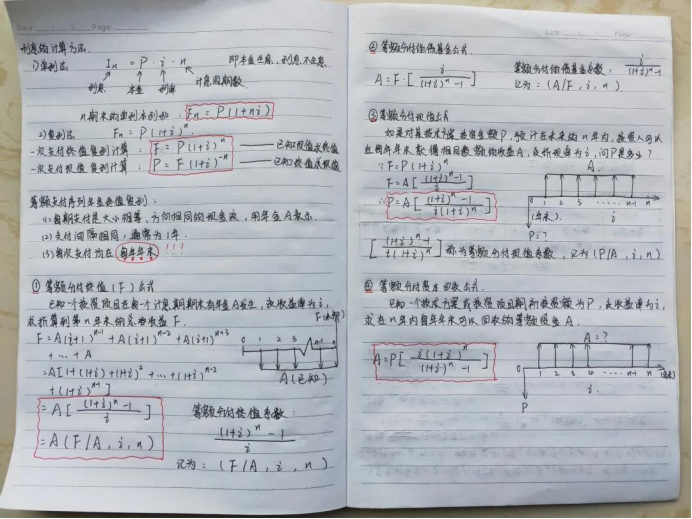 利息的计算方法.
1)单利法 In = P · i · n 即本金生息,利息不生息.
利息 本金 利率 计息周期数
n期末的单利本利和: Fn = P(1+ni)
2)复利法 Fn = P(1+i)^n
一次支付终值复利计算: F = P(1+i)^n —— 已知现值求终值
一次支付现值复利计算: P = F(1+i)^-n —— 已知终值求现值
等额支付序列年金终值复利:
(1)每期支付是大小相等、方向相同的现金流,用年金A表示.
(2)支付间隔相同,通常为1年.
(3)每次支付均在每年年末!!!
① 等额分付终值(F)公式.
已知一个投资项目在每一个计息期期末有年金A发生,设收益率为i,
求折算到第n年末的总收益F.
F = A(i+1)^n-1 + A(i+1)^n-2 + A(i+1)^n-3
+ … + A
= A[1+(1+i)+(1+i)^2+…+(1+i)^n-2
+(1+i)^n-1]
= A[(1+i)^n-1 / i]
= A(F/A, i, n)
F(未知)
0 1 2 3 n-1 n
A(已知)
等额分付终值系数:
(1+i)^n-1 / i
记为: (F/A, i, n)
② 等额分付偿债基金公式.
A = F·[i / (1+i)^n-1]
等额分付偿债基金系数: i / (1+i)^n-1
记为: (A/F, i, n)
③ 等额分付现值公式
如果对某技术方案投资金额P,预计在未来的n年内,投资人可以
在每年年末获得相同数额的收益A,设折现率为i,问P是多少?
∵ F = P(1+i)^n
F = A[(1+i)^n-1 / i]
∴ P = A[(1+i)^n-1 / i(1+i)^n]
A.
0 1 2 3 …… n-1 n
(年末). i
P=?
[(1+i)^n-1 / i(1+i)^n] 称为等额分付现值系数,记为(P/A, i, n)
④ 等额分付资本回收公式.
已知一个技术方案或投资项目期初投资额为P,设收益率为i,
求在n年内每年年末可以回收的等额资金A.
A = P[i(1+i)^n / (1+i)^n-1]
A=?
1 2 3 …… n-1 n (年末)
i.
P